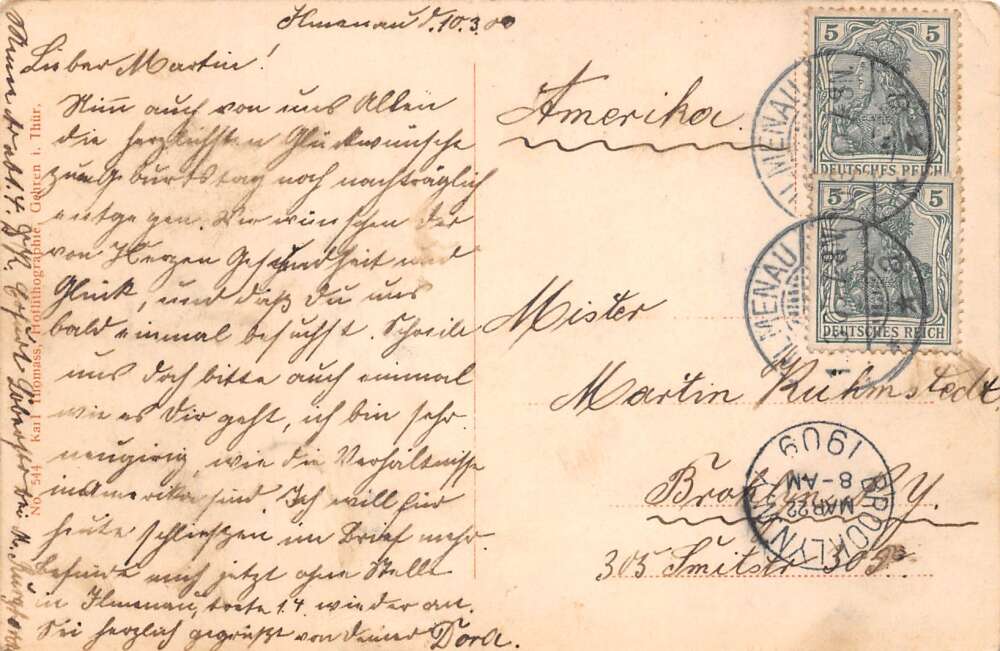 Ilmenau d. 10.3.09
Lieber Martin!
Nimm auch von uns Allen
die herzlichsten Glückwünsche
zum Geburtstag noch nachträglich
entgegen. Wir wünschen dir
von Herzen Gesundheit und
Glück, und daß Du uns
bald einmal besuchst. Schreibe
uns doch bitte auch einmal
wie es dir geht, ich bin sehr
neugirig, wie die Verhältnisse
in Amerika sind. Ich will für
heute schließen im Brief mehr.
Befinde mich jetzt ohne Stelle
in Ilmenau, trete 1.4 wieder an.
Sei herzlich gegrüßt von deiner Dora.
No. 544 Karl Thomass, Hoflithographie, Gehren i. Thür.
Amerika.
Mister
Martin Kühmstedt
Broklyn N.Y.
305 Smitstr 305.
5 5
DEUTSCHES REICH
5 5
DEUTSCHES REICH
ILMENAU
ILMENAU
BROOKLYN, N.Y.
MAR 22
8-AM
1909